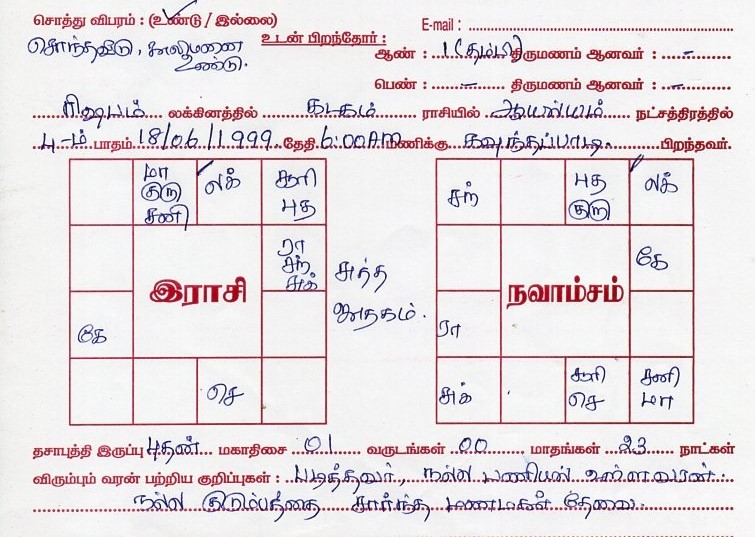 சொத்து விபரம் : (உண்டு / இல்லை)
E-mail :
சொந்தவீடு, காலிமனை உண்டு.
உடன் பிறந்தோர் :
ஆண் : 1 (தம்பி) திருமணம் ஆனவர் : -
பெண் : - திருமணம் ஆனவர் : -
ரிஷபம் லக்கினத்தில் கடகம் ராசியில் ஆயில்யம் நட்சத்திரத்தில்
4-ம் பாதம் 18/06/1999 தேதி 6:00AM மணிக்கு கவுந்தப்பாடி பிறந்தவர்.
மா குரு சனி
லக்
சூரி புத
ரா சந் சுக்
இராசி
கே
செ
சுத்த ஜாதகம்.
சந்
புத குரு
லக்
கே
நவாம்சம்
ரா
சுக்
சூரி செ
சனி மா
தசாபுத்தி இருப்பு புதன் மகாதிசை 01 வருடங்கள் 00 மாதங்கள் 23 நாட்கள்
விரும்பும் வரன் பற்றிய குறிப்புகள் : படித்தவர், நல்ல பணியில் உள்ள வரன்.
நல்ல குடும்பத்தை சார்ந்த மணமகள் தேவை.